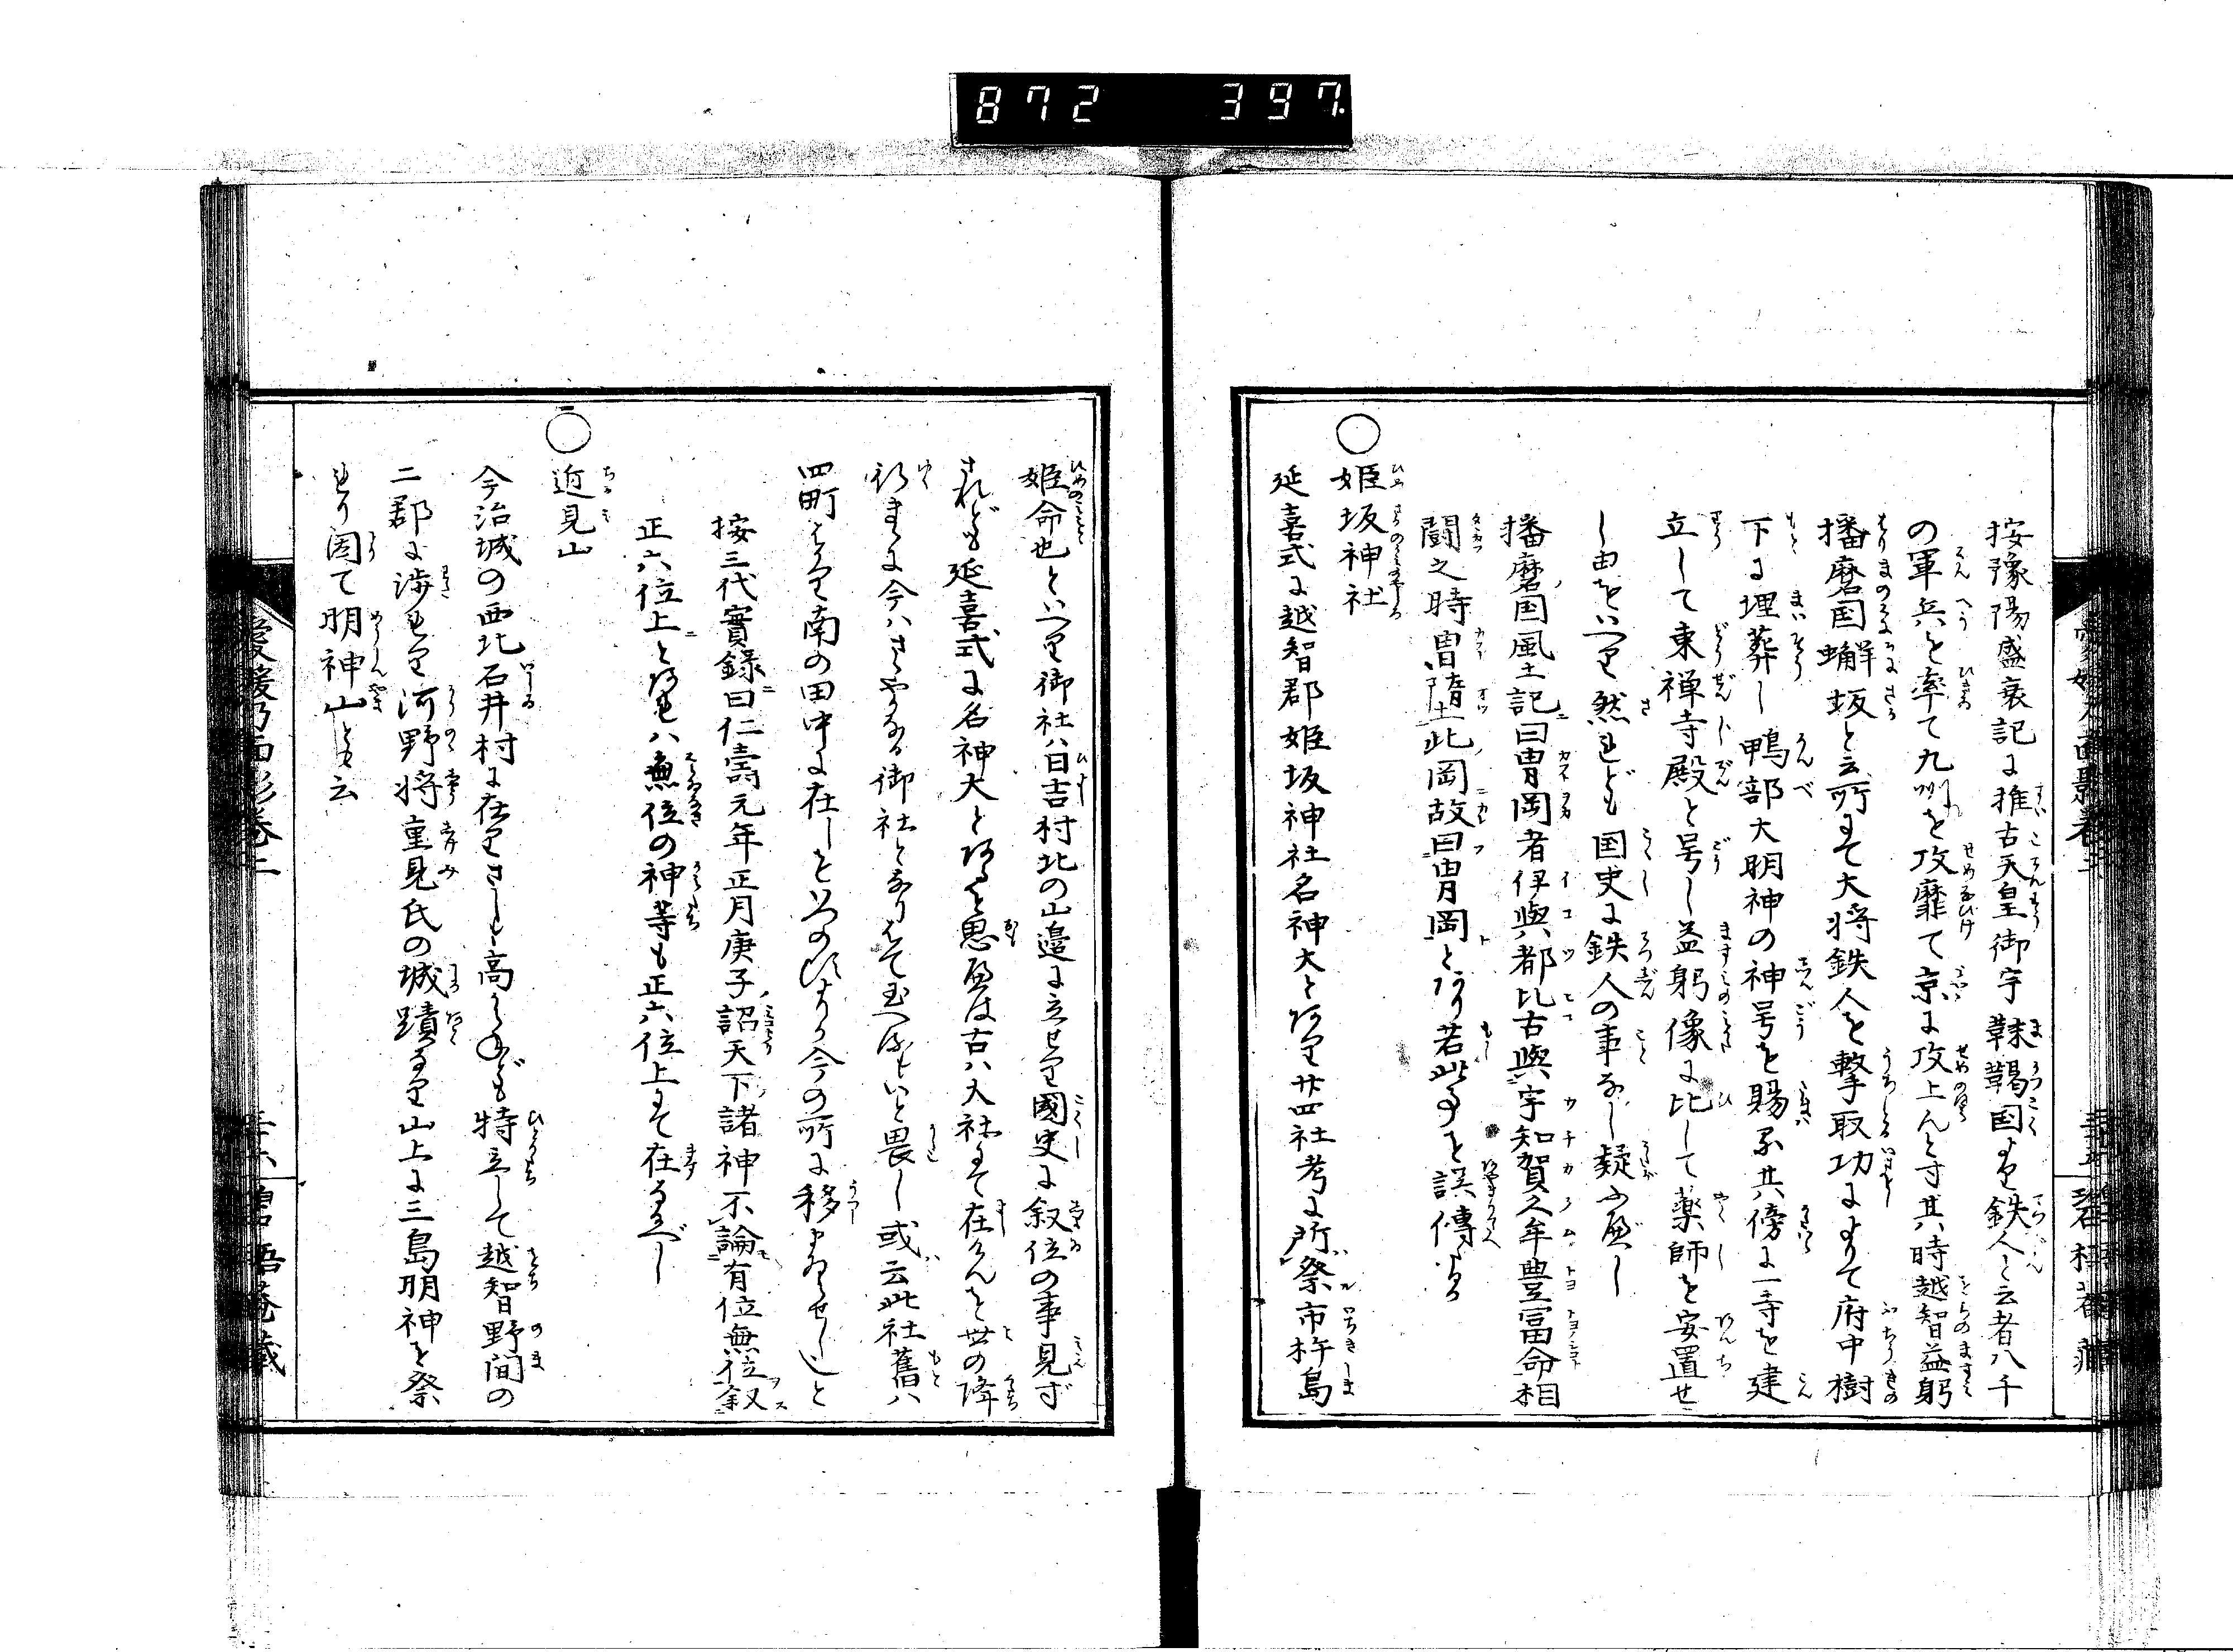 872 397
按豫陽盛衰記に推古天皇御宇靺鞨国より鉄人と云者八千
の軍兵を率て九州を攻靡て京に攻上んと寸其時越智益躬
播磨国蠏坂と云所にて大将鉄人を撃取功によりて府中樹
下に埋葬し鴨部大明神の神号を賜ふ其傍に一寺を建
立して東禅寺殿と号し益躬像に比して薬師を安置せ
し由をいへり然れども国史に鉄人の事なし疑ふべし
播磨国風土記曰冑岡者伊與都比古與宇知賀久牟豊冨命相
闘之時冑墮此岡故曰冑岡とあり若此事を誤傳たる
○姫坂神社
延喜式に越智郡姫坂神社名神大とあり廿四社考に所祭市杵島
姫命也といへり御社ハ日吉村北の山邉に立せり國史に叙位の事見ず
されども延喜式に名神大とあるを思へば古ハ大社にて在けんを世の降
行まに今ハさゝやかなる御社となりはて玉へるハいと畏し或云此社舊ハ
四町ばかり南の田中に在しをいつの頃よりか今の所に移し奉らせしと
按三代實錄曰仁壽元年正月庚子詔天下諸神不論有位無位叙
正六位上とあれハ無位の神等も正六位上にて在るべし
○近見山
今治城の西北石井村に在りさしも高からねども特立して越智野間の
二郡に渉れり河野将重見氏の城蹟なり山上に三島明神を祭
れり因て明神山とも云
愛媛乃面影巻二
三十六